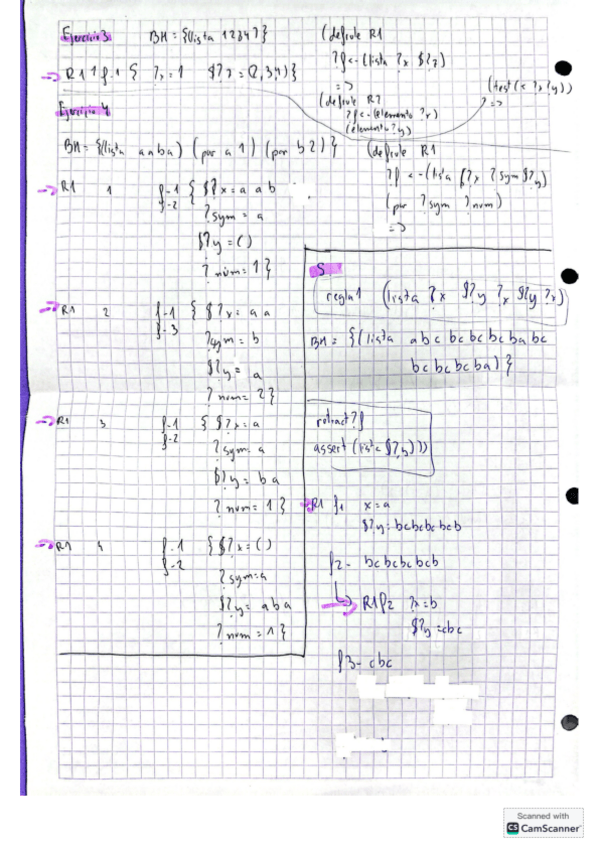 Ejercicio 3
BH = {(lista 1 2 3 4)}
(defrule R1
?f <- (lista ?x $?z)
=>
R1 1 f-1 { ?x = 1 $?z = (2,3,4)}
(defrule R2
?f <- (elemento ?x)
(elemento ?y)
(test (< ?x ?y))
=>
Ejercicio 4
BH = {(lista a a b a) (par a 1) (par b 2)}
(defrule R1
?f <- (lista $?x ?sym $?y)
(par ?sym ?num)
=>
R1 1 f-1 { $?x = a a b
f-2 ?sym = a
$?y = ()
?num = 1}
R1 2 f-1 { $?x = a a
f-3 ?sym = b
$?y = a
?num = 2}
R1 3 f-1 { $?x = a
f-2 ?sym = a
$?y = b a
?num = 1}
R1 4 f-1 { $?x = ()
f-2 ?sym = a
$?y = a b a
?num = 1}
5
regla1 (lista ?x $?y ?x $?y ?x)
BH = {(lista a b c b c b c b c b a b c
b c b c b a)}
retract ?f
assert (lista $?y)))
R1 f1 x = a
$?y: bcbcbcbcb
f2- bcbcbcbcb
R1 f2 ?x = b
$?y = cbc
f3- cbc
Scanned with
CS CamScanner